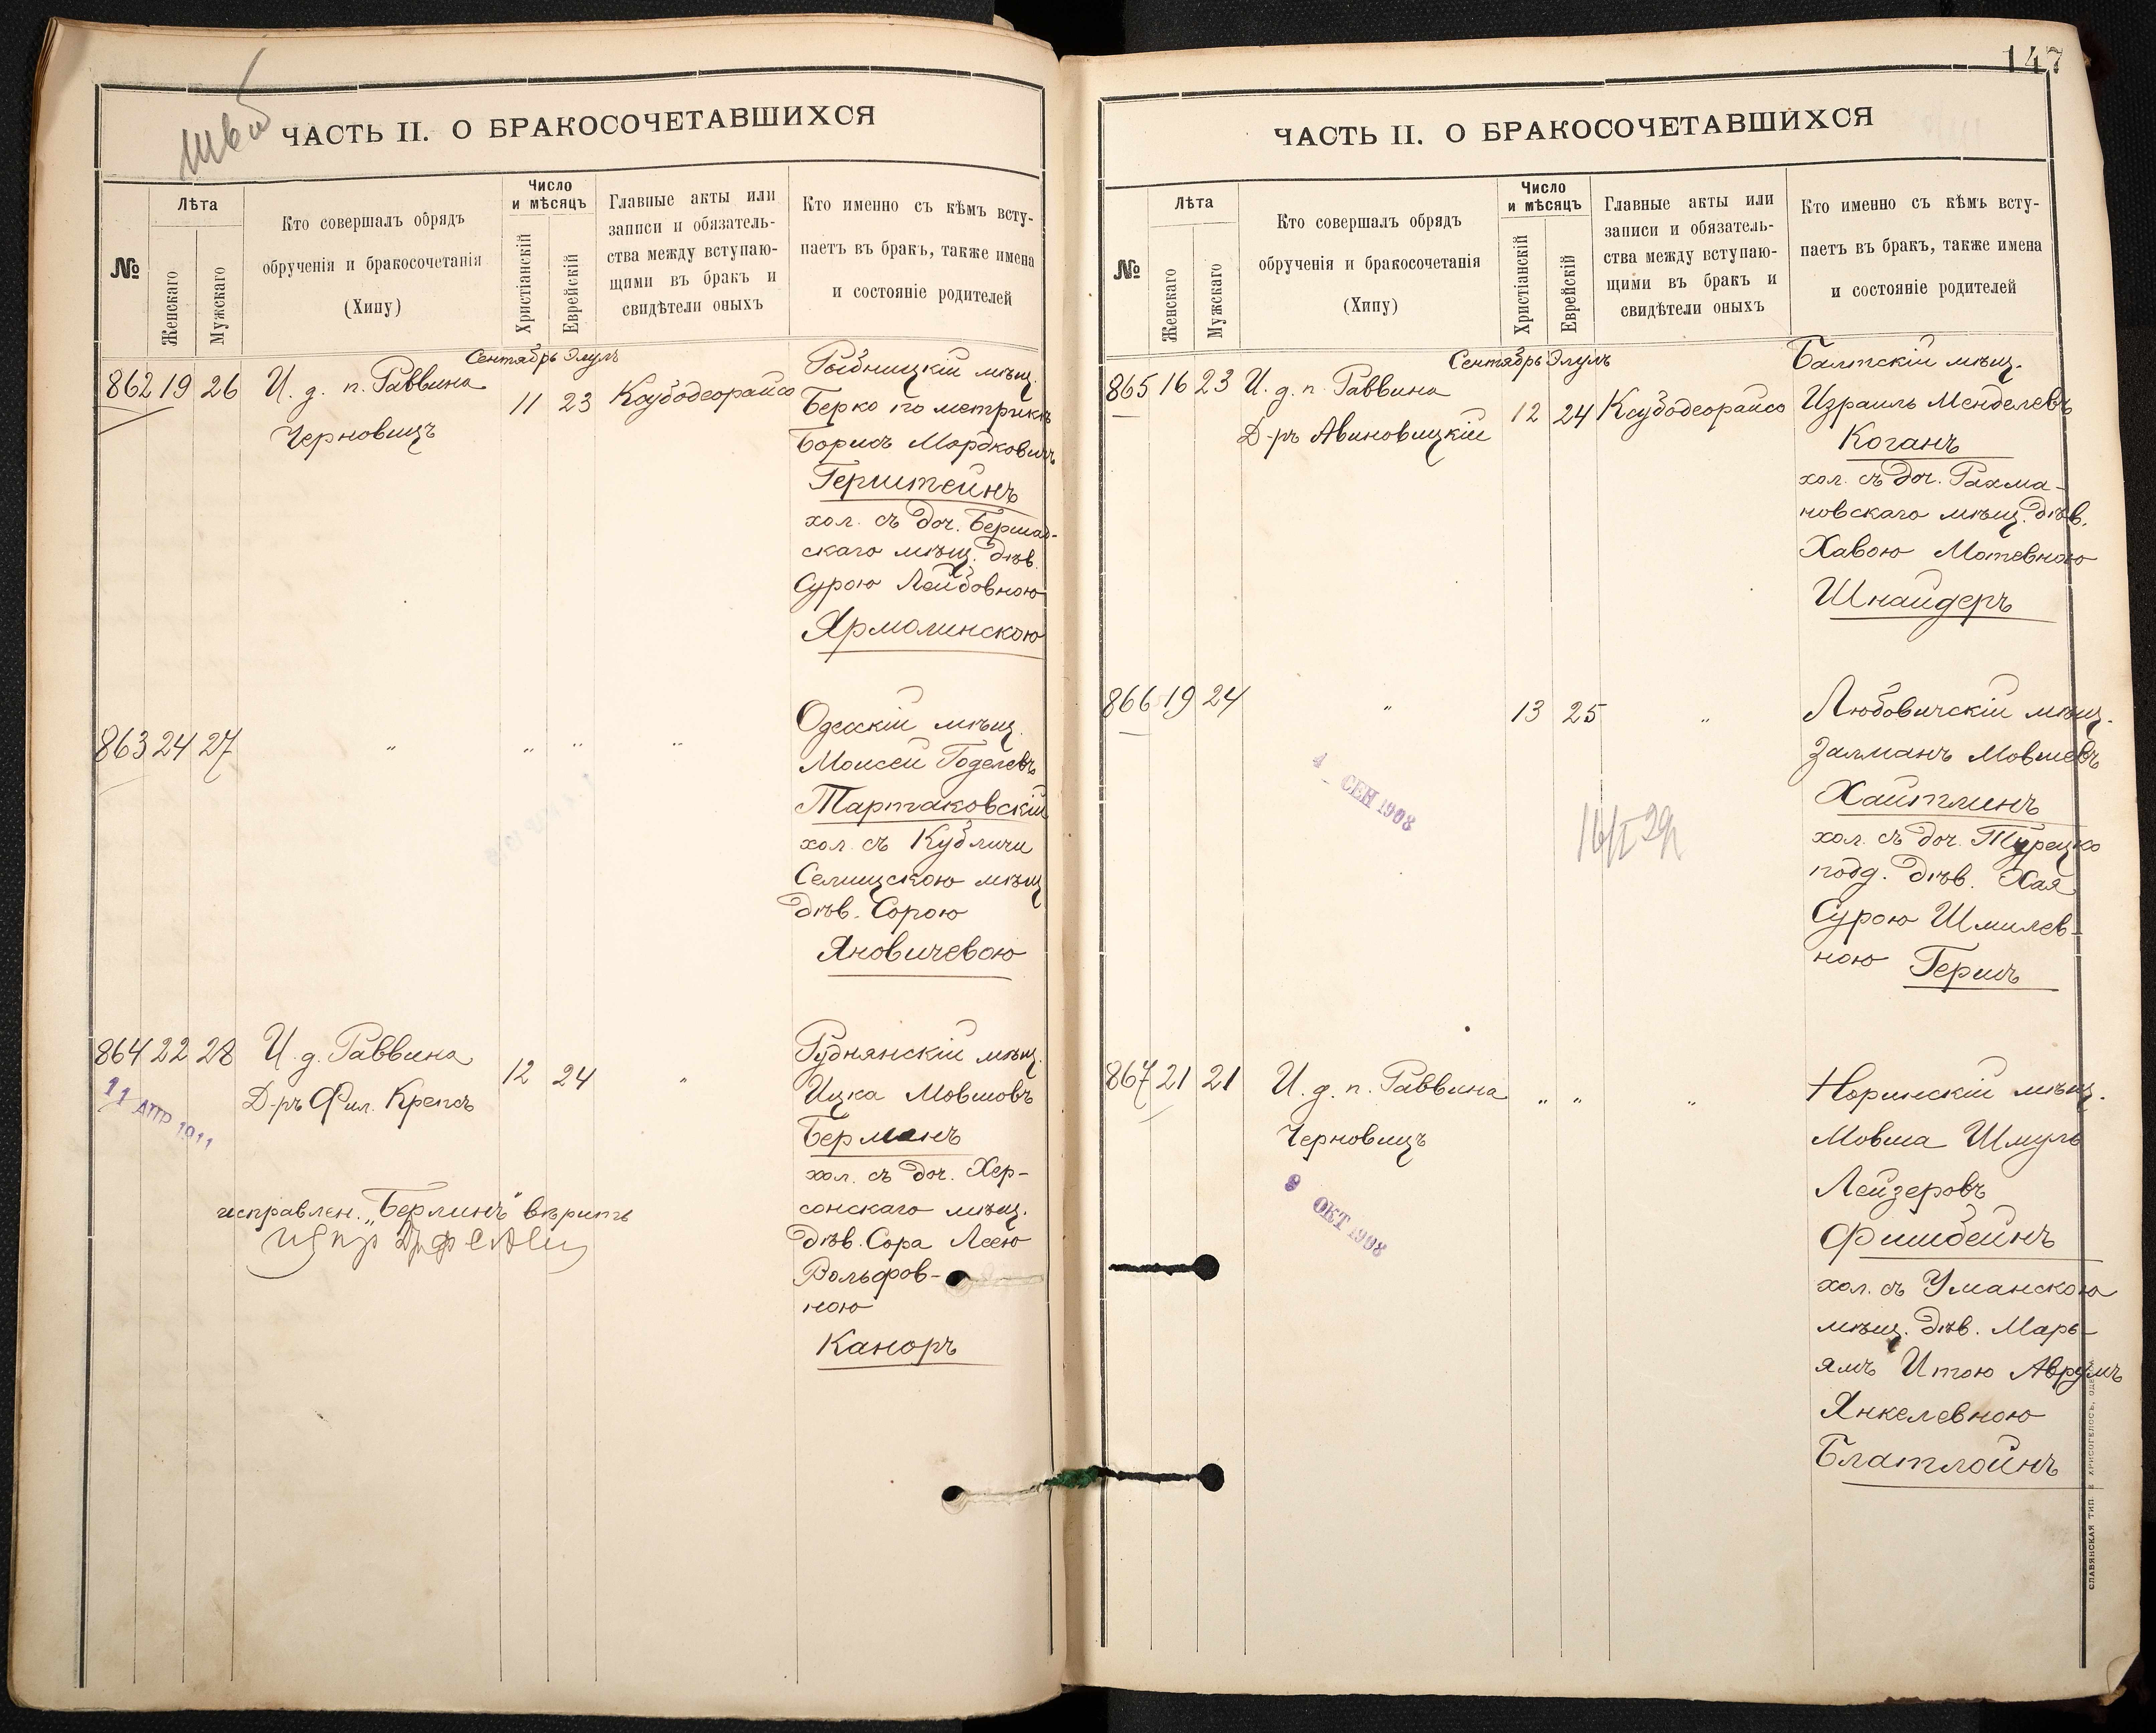 ЧАСТЬ II. О БРАКОСОЧЕТАВШИХСЯ
№
Лѣта
Женскаго
Мужскаго
Кто совершалъ обрядъ
обрученія и бракосочетанія
(Хипу)
Число
и мѣсяцъ
Христіанскій
Еврейскій
Главные акты или
записи и обязатель-
ства между вступаю-
щими въ бракъ и
свидѣтели оныхъ
Кто именно съ кѣмъ всту-
паетъ въ бракъ, также имена
и состояніе родителей
Сентябрь Элулъ
862 19 26
И. д. п. Раввина
Черновицъ
11 23
Ксубодеорайсо
Рыбницкій мѣщ.
Берко по метрикѣ
Борисъ Мордковичъ
Герштейнъ
хол. съ доч. Бершад-
скаго мѣщ. дѣв.
Сурою Лейбовною
Ярмолинскою
863 24 27
" " " "
Одесскій мѣщ.
Моисей Годелевъ
Тартаковскій
хол. съ Кубличи
Селищскою мѣщ
дѣв. Сорою
Яновичевою
864 22 28
И. д. Раввина
Д-ръ Фил. Крепсъ
12 24
"
Руднянскій мѣщ.
Ицка Мовшовъ
Берманъ
хол. съ доч. Хер-
сонскаго мѣщ.
дѣв. Сора Леею
Вольфов-
ною
Каноръ
11 АПР 1911
исправлен. „Берлинъ" вѣрить
147
ЧАСТЬ II. О БРАКОСОЧЕТАВШИХСЯ
№
Лѣта
Женскаго
Мужскаго
Кто совершалъ обрядъ
обрученія и бракосочетанія
(Хипу)
Число
и мѣсяцъ
Христіанскій
Еврейскій
Главные акты или
записи и обязатель-
ства между вступаю-
щими въ бракъ и
свидѣтели оныхъ
Кто именно съ кѣмъ всту-
паетъ въ бракъ, также имена
и состояніе родителей
Сентябрь Элулъ
865 16 23
И. д. п. Раввина
Д-ръ Авиновицкій
12 24
Ксубодеорайсо
Балтскій мѣщ.
Израиль Менделевъ
Коганъ
хол. съ доч. Рахма-
новскаго мѣщ. дѣв.
Хавою Мотевною
Шнайдеръ
866 19 24
"
13 25
"
Любовичскій мѣщ.
Залманъ Мовшевъ
Хайтлинъ
хол. съ доч. Турецко
подд. дѣв. Хая
Сурою Шмилев-
ною Гершъ
4 СЕН 1908
867 21 21
И. д. п. Раввина
Черновицъ
" "
"
Норинскій мѣщ.
Мовша Шмуль
Лейзеровъ
Фишбейнъ
хол. съ Уманскою
мѣщ. дѣв. Марь-
ямъ Итою Аврумъ
Янкелевною
Блатлойнъ
9 ОКТ 1908
СЛАВЯНСКАЯ ТИП. Е ХРИСОГЕЛОСЪ, ОДЕССА